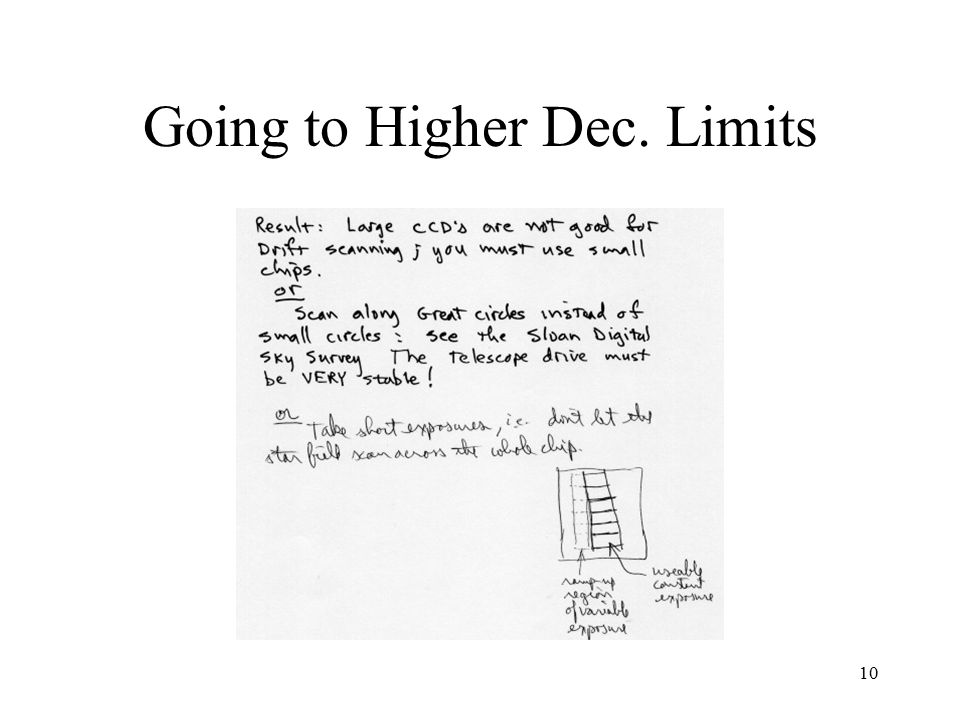 Going to Higher Dec. Limits
Result: Large CCD's are not good for
Drift scanning; you must use small
chips.
or
Scan along Great circles instead of
small circles: see the Sloan Digital
Sky Survey The telescope drive must
be VERY stable!
or Take short exposures, i.e. don't let the
star field scan across the whole chip.
ramp-up
region
of variable
exposure
useable
constent
exposure
10